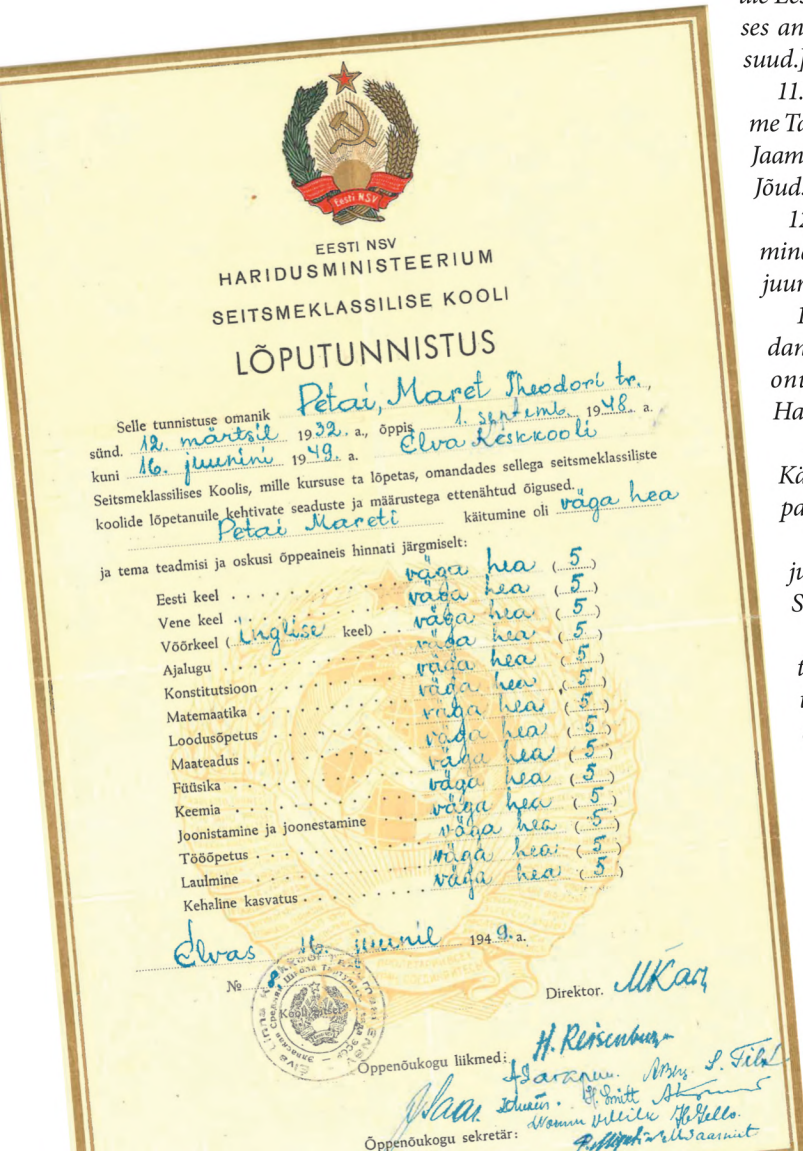 Eesti NSV
EESTI NSV
HARIDUSMINISTEERIUM
SEITSMEKLASSILISE KOOLI
LÕPUTUNNISTUS
Selle tunnistuse omanik Petai, Maret Theodori tr.,
sünd. 12. märtsil 1932. a., õppis 1. septemb. 1948. a.
kuni 16. juunini 1949. a. Elva Keskkooli
Seitsmeklassilises Koolis, mille kursuse ta lõpetas, omandades sellega seitsmeklassiliste
koolide lõpetanuile kehtivate seaduste ja määrustega ettenähtud õigused.
Petai Mareti käitumine oli väga hea
ja tema teadmisi ja oskusi õppeaineis hinnati järgmiselt:
Eesti keel . . . . väga hea (5)
Vene keel . . . . väga hea (5)
Võõrkeel (inglise keel) . . väga hea (5)
Ajalugu . . . . väga hea (5)
Konstitutsioon . . . . väga hea (5)
Matemaatika . . . . väga hea (5)
Loodusõpetus . . . . väga hea (5)
Maateadus . . . . väga hea (5)
Füüsika . . . . väga hea (5)
Keemia . . . . väga hea (5)
Joonistamine ja joonestamine väga hea (5)
Tööõpetus . . . . väga hea (5)
Laulmine . . . . väga hea (5)
Kehaline kasvatus . . . . väga hea (5)
Elvas 16. juunil 1949. a.
№ 8
Kooli pitser
Direktor. MKar
Õppenõukogu liikmed: H. Reisenbuk
JSaar. H. Smitt
Õppenõukogu sekretär:
ses an
suud.J
11.
me Ta
Jaam
Jõud.
12
mina
juur
dan
onu
Ha
Kä
pa
ju
S
t